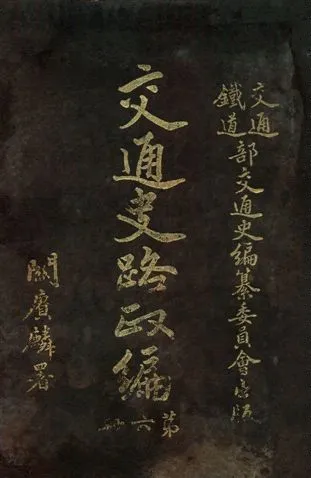 交通
鐵道
部交通史編纂委員會出版
交通史路政編
第六冊
關賡麟署